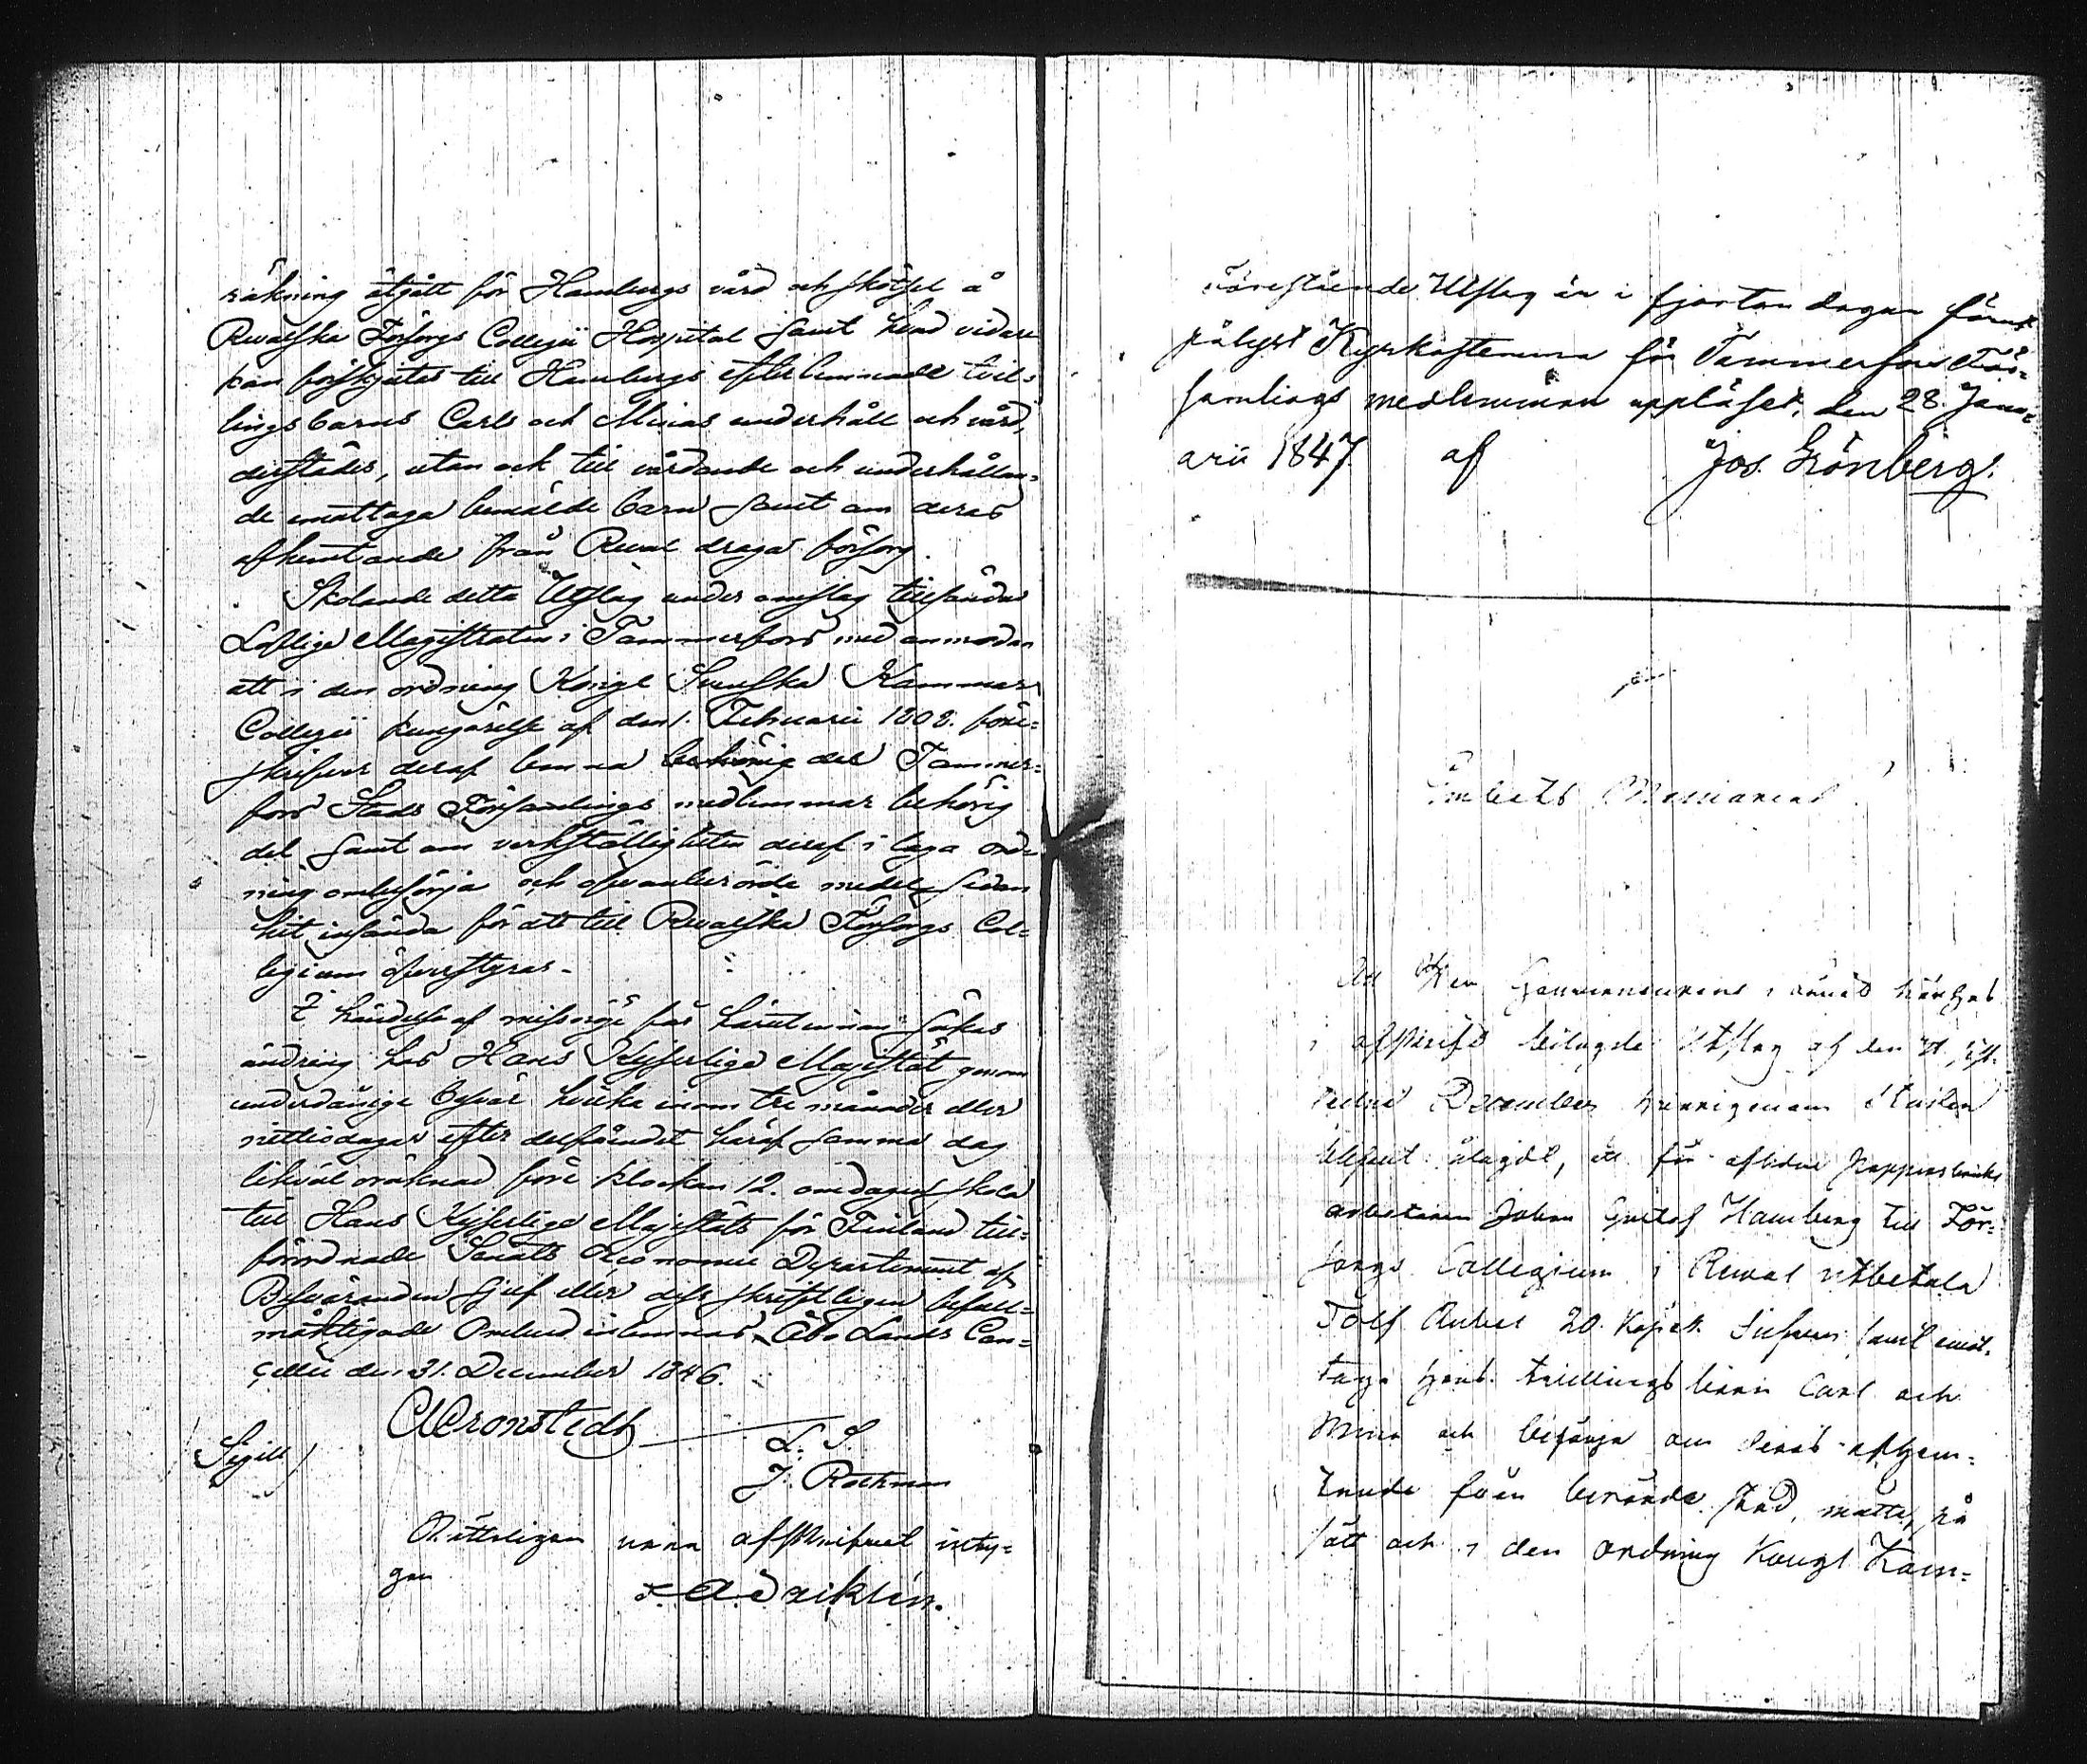 räkning åtgått för Hambergs vård och skötsel å
Revalska Försorgs Collegii Hospital samt hvad vidare
kan förskjutas till Hambergs efterlemnade tvil-
lings barns Carls och Minas underhåll och vård,
derstädes, utan ock till vårdande och underhållan-
de emottaga bemälde barn samt om deras
afhemtande från Reval draga försorg.
Skolande detta Utslag under omslag tillsändas
Loflige Magistraten i Tammerfors med anmodan
att i den ordning Kongl Svenska Kammar
Collegii kungörelse af den 1. Februarii 1808. före-
skrifver deraf lemna behörig del Tammer-
fors Stads Församlings medlemmar behörig
del samt om verkställigheten deraf i laga ord-
ning ombesörja och ofvanberörde medel sedan
hit insända för att till Revalska Försorgs Col-
legium öfverstyras.
I händelse af missnöje får härutinnan sökas
ändring hos Hans Kejserliga Majestät genom
underdånige besvär hvilka inom tre månader eller
nittiodagar efter delfåendet häraf samma dag
likväl oräknad före klockan 12. om dagen skola
till Hans Kejserliga Majestäts för Finland till-
förordnade Senats Oeconomie Departement af
Besväranden sjelf eller dess skriftligen befull-
mäktigade Ombud inlemnas. Åbo Lands Can-
cellie den 31. December 1846.
Cronstedt
L. S.
(Sigill)
J. Rothman
Rätteligen vara afskrifvet inty-
gar
Förestående Utslag är i fjorton dagar förut
pålyst Kyrkostemma för Tammerfors För-
samlings medlemmar uppläset, den 28. Janu-
arii 1847. af Jos. Grönberg.
Embets Memorial
Gouverneurens
i afskrift bilagde Utslag af den 31. sist-
ledne December
blifvit ålagdt, att för aflidne Pappersbruks
arbetaren Johan Gustaf Hamberg till För-
sorgs Collegium i Reval utbetala
Tolf Rubel 20. Kopek. Silfver samt emot-
taga hans tvillings barn Carl och
Mina och besörja om deras afhem-
tande från berörde stad, måtte, på
sätt och i den ordning Kongl Kam-